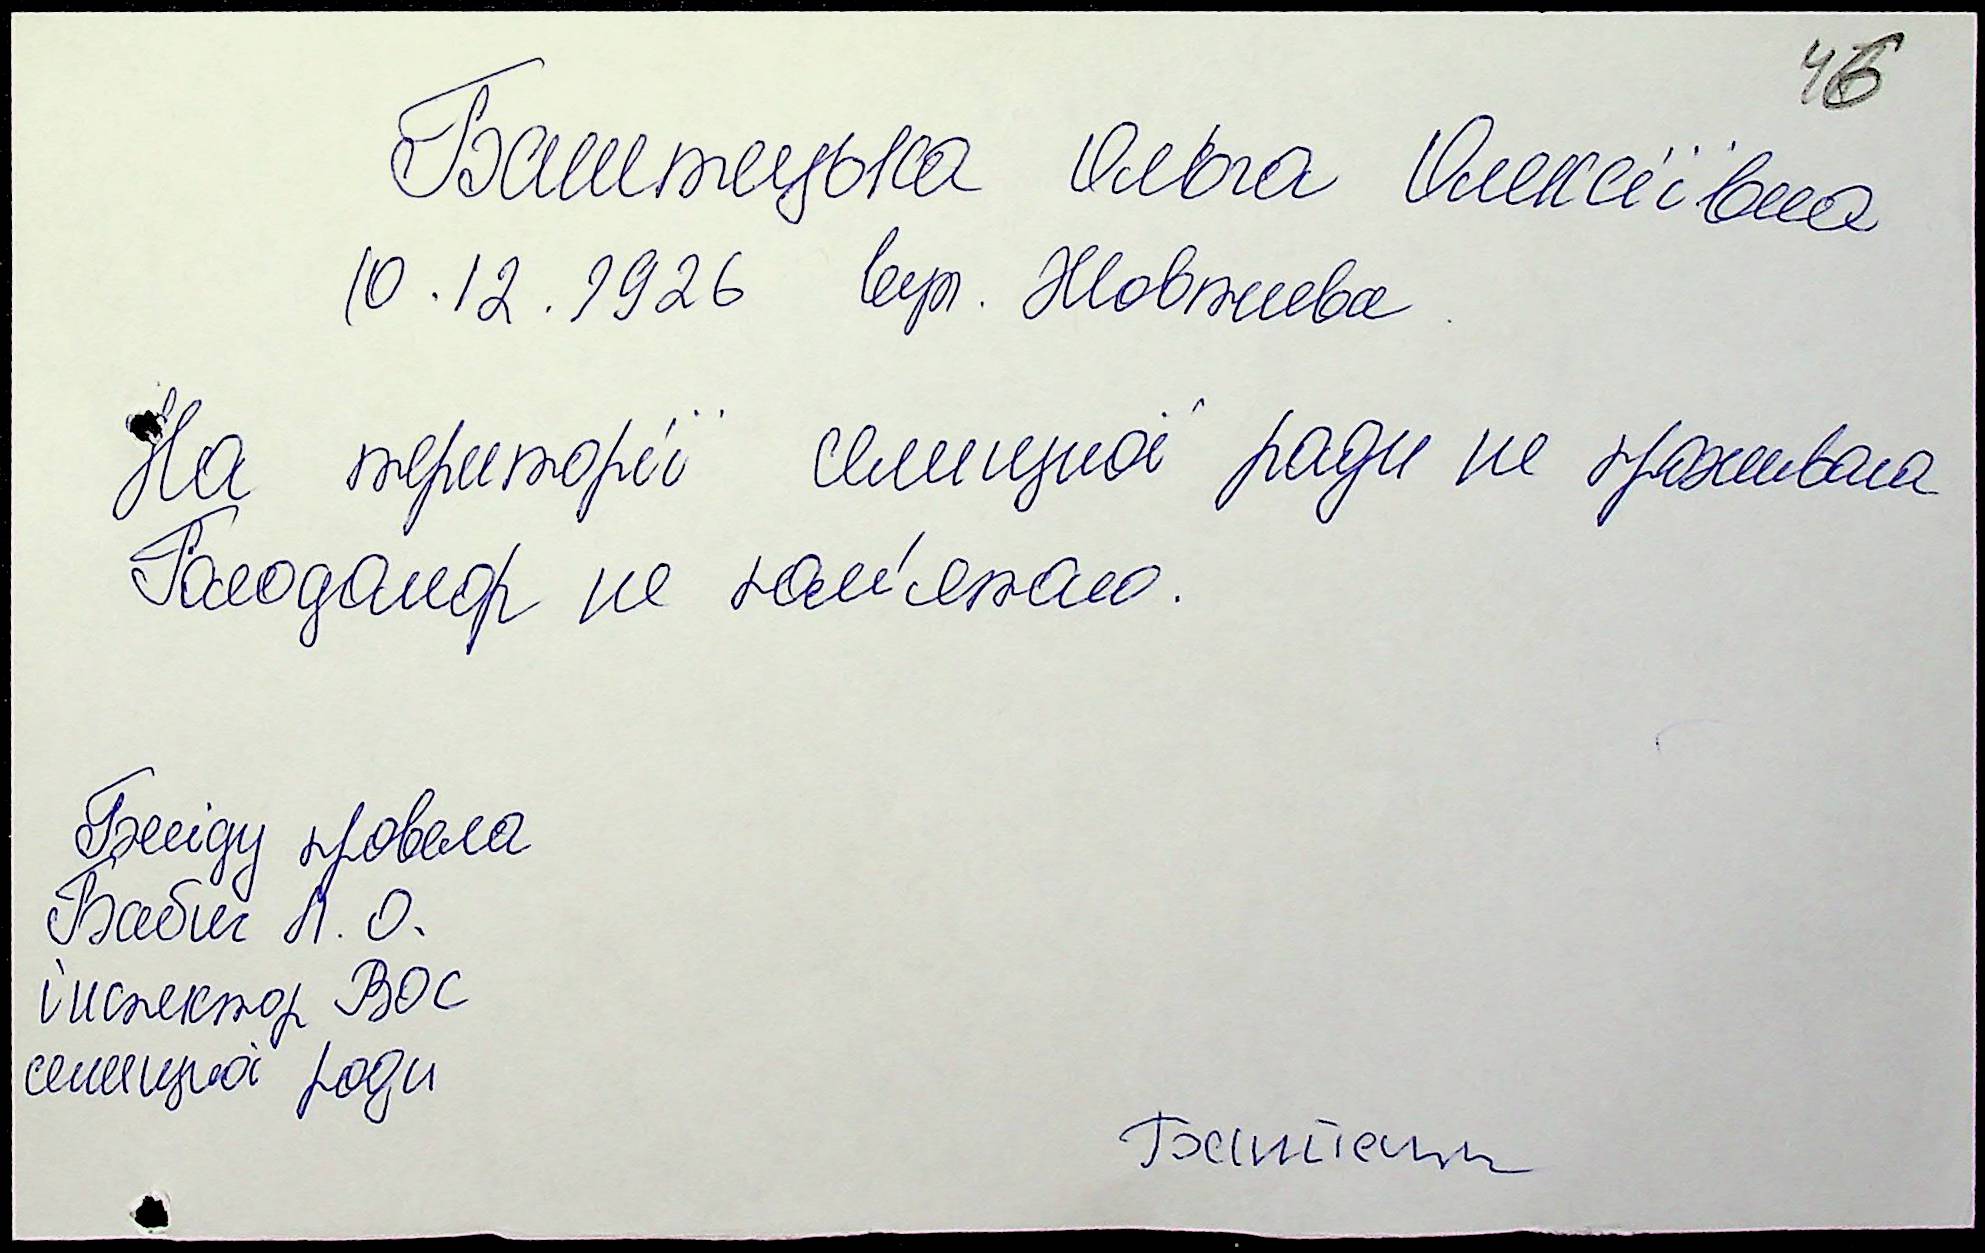 46
Баштецька Ольга Олексіївна
10.12.1926 вул. Жовтнева
На території селищної ради не проживала
Голодомор не пам'ятаю.
Бесіду провела
Бабич Л. О.
інспектор ВОС
селищної ради